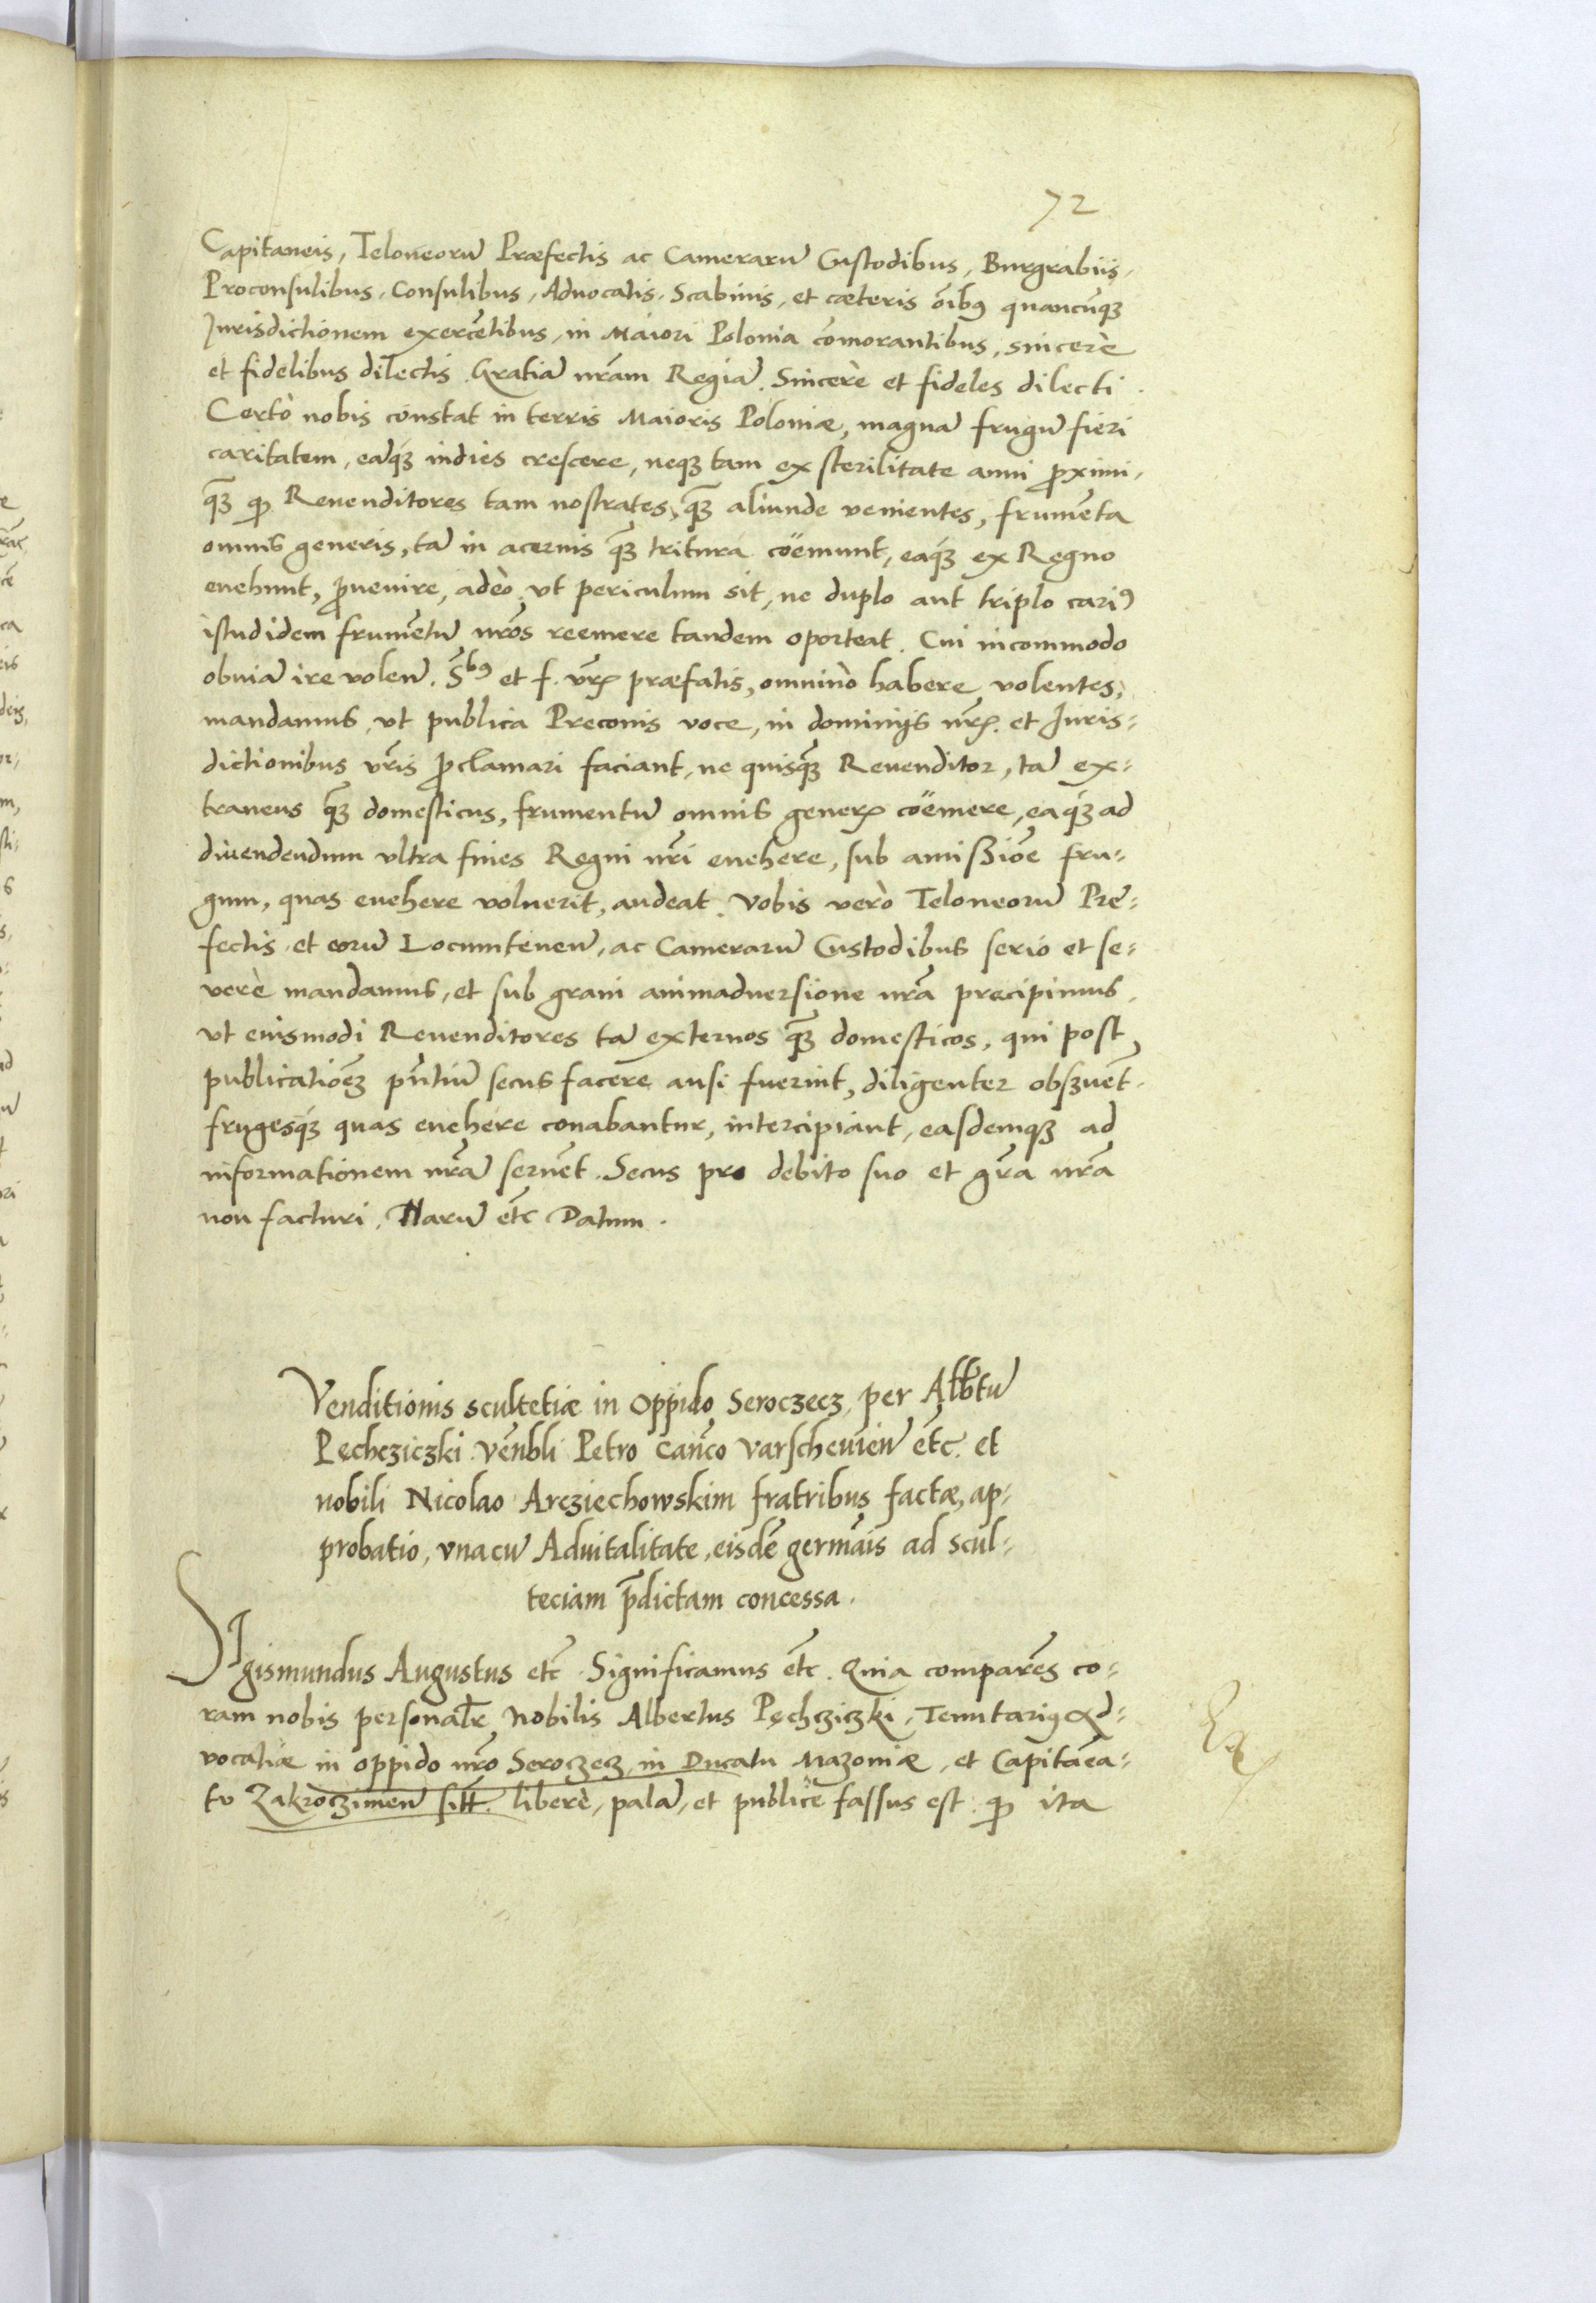 72
Capitaneis, Teloneorū Præfectis ac Camerarū Custodibus, Burgrabiis,
Proconsulibus, Consulibus, Aduocatis, Scabinis, et cæteris o̅ibꝰ quancūqꝫ
Jurisdictionem exercētibus, in Maiori Polonia cōmorantibus, sincerè
et fidelibus dilectis. Gratiā nr̄am Regiā. Sincerè et fideles dilecti.
Certò nobis constat in terris Maioris Poloniæ, magnā frugū fieri
caritatem, eāqꝫ indies crescere, neqꝫ tam ex sterilitate anni p̄ximi,
qꝫ̄ ꝙ Reuenditores tam nostrates, qꝫ̄ aliunde venientes, frumēta
omnis generis, tā in aceruis qꝫ̄ triturá coëmunt, eaqꝫ ex Regno
euehunt, p̄uenire, adeò, vt periculum sit, ne duplo aut triplo cariꝰ
istud idem frumētū nr̄os reemere tandem oporteat. Cui incommodo
obuiā ire volen̄. S̄bꝰ et f. vr̄ꝭ præfatis, omninò habere volentes,
mandamus, vt publica Preconis voce, in dominijs nr̄ꝭ. et Juris-
dictionibus vr̄is p̄clamari faciant, ne quisqꝫ̄ Reuenditor, tā ex-
traneus qꝫ̄ domesticus, frumentū omnis generꝭ coëmere, eaqꝫ ad
diuendendum vltra fines Regni nr̄i euehere, sub amißiōe fru-
gum, quas euehere voluerit, audeat. Vobis verò Teloneorū Præ-
fectis et eorū Locumtenen̄, ac Camerarū Custodibus serio et se-
verè mandamus, et sub graui animaduersione nr̄a præcipimus,
vt eiusmodi Reuenditores tā externos qꝫ̄ domesticos, qui post
publicatiōeꝫ pn̄tiū secus facere ausi fuerint, diligenter obsꝫuēt.
frugesqꝫ quas euehere conabantur, intercipiant, easdemqꝫ ad
informationem nr̄ā seruēt. Secus pro debito suo et gr̄a nr̄a
non facturi. Harū etc̄ Datum.
Venditionis scultetiæ in oppido Seroczecz, per Alb̄tū
Pęchcziczki vēnbli Petro Can̄co varscheuien̄ etc̄. et
nobili Nicolao Arcziechowskim fratribus factæ, ap-
probatio, vnacū Aduitalitate, eisdē germāis ad scul-
teciam p̄dictam concessa.
SIgismundus Augustus etc̄ Significamus etc̄. Quia comparēs co-
ram nobis personalr̄ Nobilis Albertus Pęchcziczki, Tenutariꝰ Ad-
vocatiæ in oppido nr̄o Seroczecz, in Ducatu Mazouiæ, et Capitāea-
tu Zakroczimen̄ sitt̄. liberè, palā, et publicè fassus est. ꝙ ita